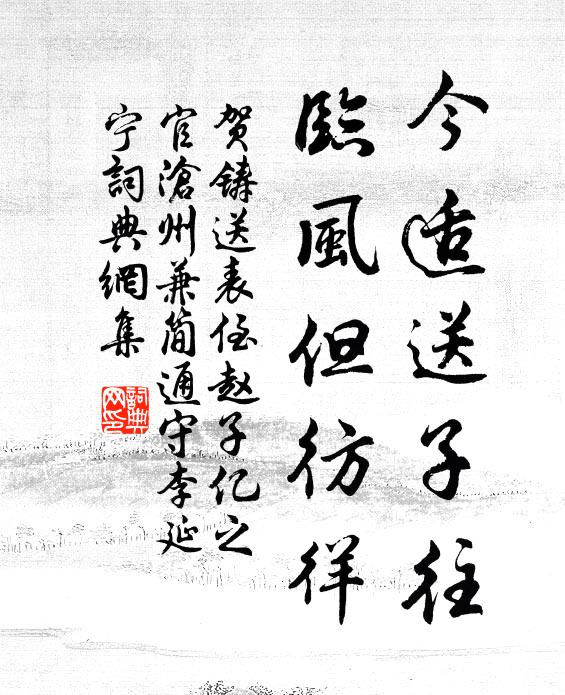 今适送子往
臨風但彷徉
贺鑄送表侄赵子亿之
官滄州兼简通守李延
宁詞典網集
詞典網印